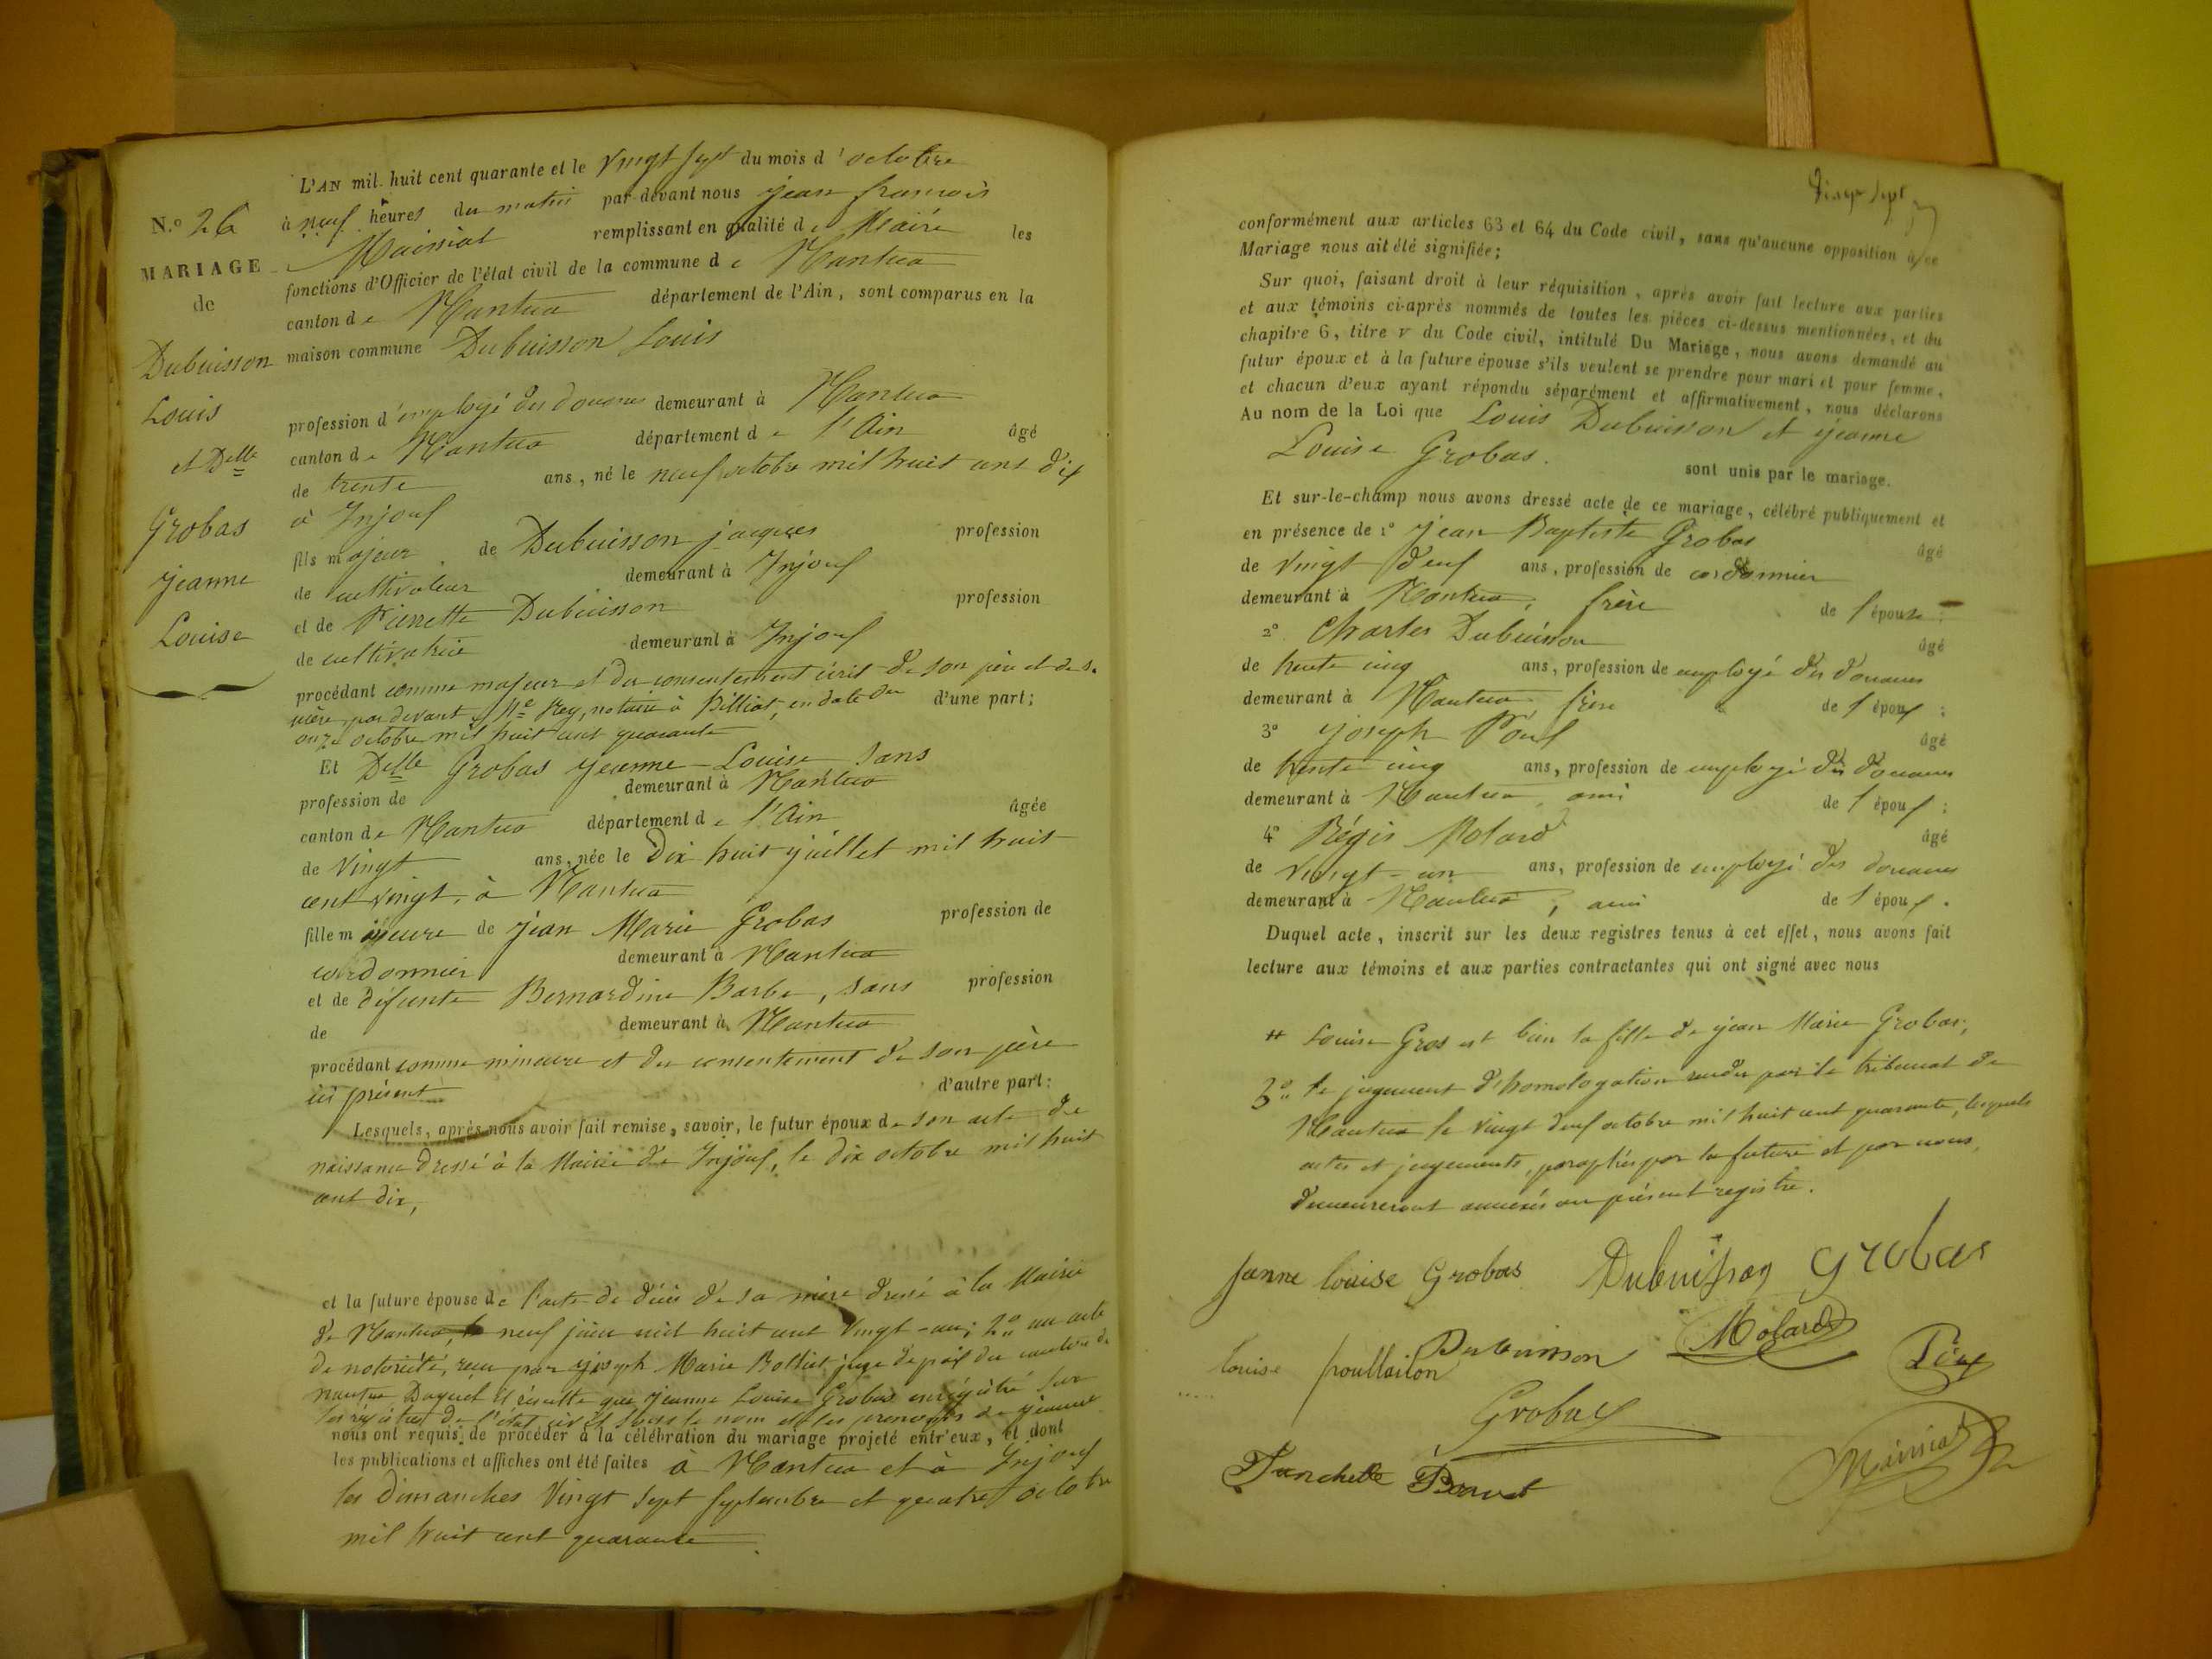 N.º 26
MARIAGE
de
Dubuisson
Louis
et Delle
Grobas
Jeanne
Louise
L'AN mil huit cent quarante et le vingt sept du mois d'octobre
à neuf heures du matin par-devant nous jean françois
Mainiat remplissant en qualité de Maire les
fonctions d'Officier de l'état civil de la commune de Nantua
canton de Nantua département de l'Ain, sont comparus en la
maison commune Dubuisson Louis
profession d'employé des douanes demeurant à Nantua
canton de Nantua département de l'Ain âgé
de trente ans, né le neuf octobre mil huit cent dix
à Injoux
fils majeur de Dubuisson jacques profession
de cultivateur demeurant à Injoux
et de Pierrette Dubuisson profession
de cultivatrice demeurant à Injoux
procédant comme majeur et du consentement écrit de son père et de sa
mère, par devant Me Rey, notaire à Billiat, en date du d'une part;
onze octobre mil huit cent quarante
Et Delle Grobas Jeanne-Louise sans
profession de demeurant à Nantua
canton de Nantua département de l'Ain âgée
de vingt ans, née le dix huit juillet mil huit
cent vingt, à Nantua
fille mineure de Jean Marie Grobas profession de
cordonnier demeurant à Nantua
et de défunte Bernardine Barbe, sans profession
de demeurant à Nantua
procédant comme mineure et du consentement de son père
ici présent d'autre part:
Lesquels, après nous avoir fait remise, savoir, le futur époux de son acte de
naissance dressé à la Mairie de Injoux, le dix octobre mil huit
cent dix,
et la future épouse de l'acte de décès de sa mère dressé à la Mairie
de Nantua, le neuf juin mil huit cent vingt-un; 2º un acte
de notoriété, reçu par joseph Marie Bolliet, juge de paix du canton de
nantua Duquel il résulte que Jeanne Louise Grobas enregistré sur
les registres de l'état civil sous le nom et les prenoms de jeanne
nous ont requis de procéder à la célébration du mariage projeté entr'eux, et dont
les publications et affiches ont été faites à Nantua et à Injoux
les dimanches vingt sept septembre et quatre octobre
mil huit cent quarante
vingt sept
conformément aux articles 63 et 64 du Code civil, sans qu'aucune opposition à ce
Mariage nous ait été signifiée;
Sur quoi, faisant droit à leur réquisition, après avoir fait lecture aux parties
et aux témoins ci-après nommés de toutes les pièces ci-dessus mentionnées, et du
chapitre 6, titre V du Code civil, intitulé Du Mariage, nous avons demandé au
futur époux et à la future épouse s'ils veulent se prendre pour mari et pour femme,
et chacun d'eux ayant répondu séparément et affirmativement, nous déclarons
Au nom de la Loi que Louis Dubuisson et jeanne
Louise Grobas. sont unis par le mariage.
Et sur-le-champ nous avons dressé acte de ce mariage, célébré publiquement et
en présence de 1º jean Baptiste Grobas âgé
de vingt deux ans, profession de cordonnier
demeurant à Nantua, frère de l'épouse;
2º Charles Dubuisson âgé
de trente cinq ans, profession de employé des douanes
demeurant à Nantua, frère de l'époux;
3º joseph Poux âgé
de trente cinq ans, profession de employé des douanes
demeurant à Nantua, ami de l'époux;
4º Régis Molard âgé
de vingt-un ans, profession de employé des douanes
demeurant à Nantua, ami de l'époux.
Duquel acte, inscrit sur les deux registres tenus à cet effet, nous avons fait
lecture aux témoins et aux parties contractantes qui ont signé avec nous
# Louise Gros est bien la fille de jean Marie Grobas;
3º le jugement d'homologation rendu par le tribunal de
Nantua le vingt deux octobre mil huit cent quarante, lesquels
actes et jugements, paraphés par la future et par nous,
demeureront annexés au présent registre.
Janne louise Grobas Dubuisson Grobas
louise poullailon Dubuisson Molard
Grobas
Mainiat